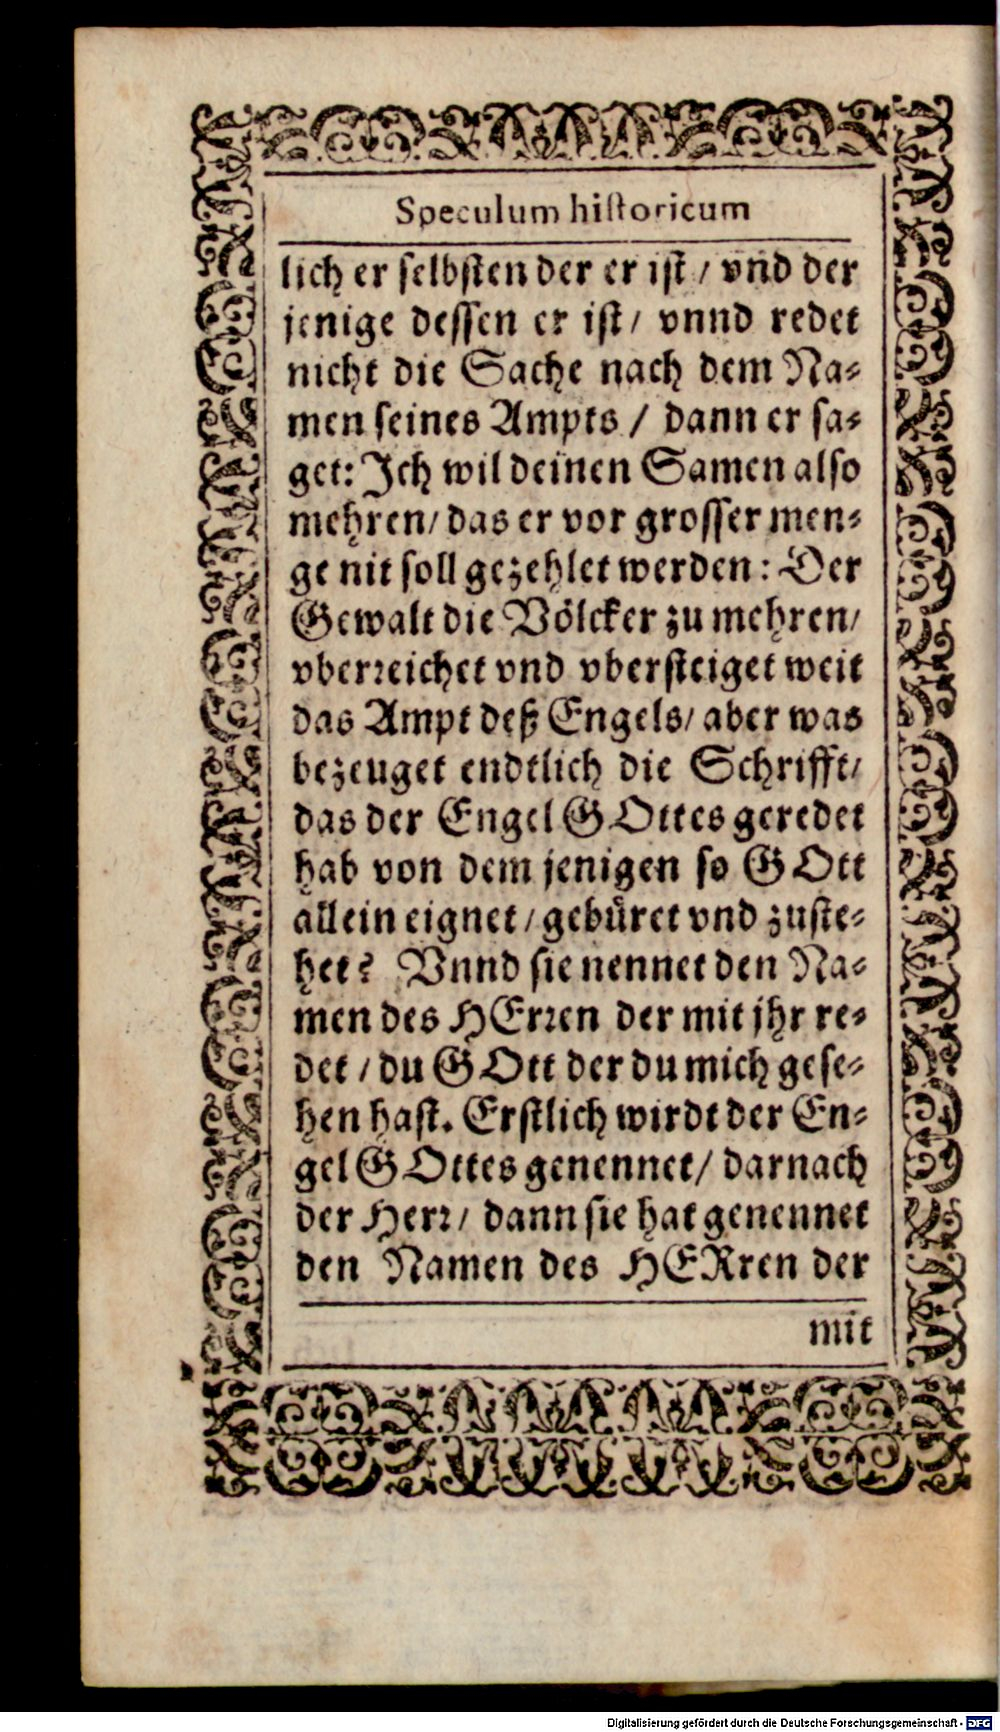 Speculum historicum
lich er selbsten der er ist / vnd der
jenige dessen er ist / vnnd redet
nicht die Sache nach dem Na-
men seines Ampts / dann er sa-
get: Ich wil deinen Samen also
mehren / das er vor grosser men-
ge nit soll gezehlet werden: Der
Gewalt die Völcker zu mehren /
vberreichet vnd vbersteiget weit
das Ampt deß Engels / aber was
bezeuget endtlich die Schrifft /
das der Engel GOttes geredet
hab von dem jenigen so GOtt
allein eignet / gebüret vnd zuste-
het? Vnnd sie nennet den Na-
men des HErren der mit jhr re-
det / du GOtt der du mich gese-
hen hast. Erstlich wirdt der En-
gel GOttes genennet / darnach
der Herr / dann sie hat genennet
den Namen des HERren der
mit
Digitalisierung gefördert durch die Deutsche Forschungsgemeinschaft - DFG